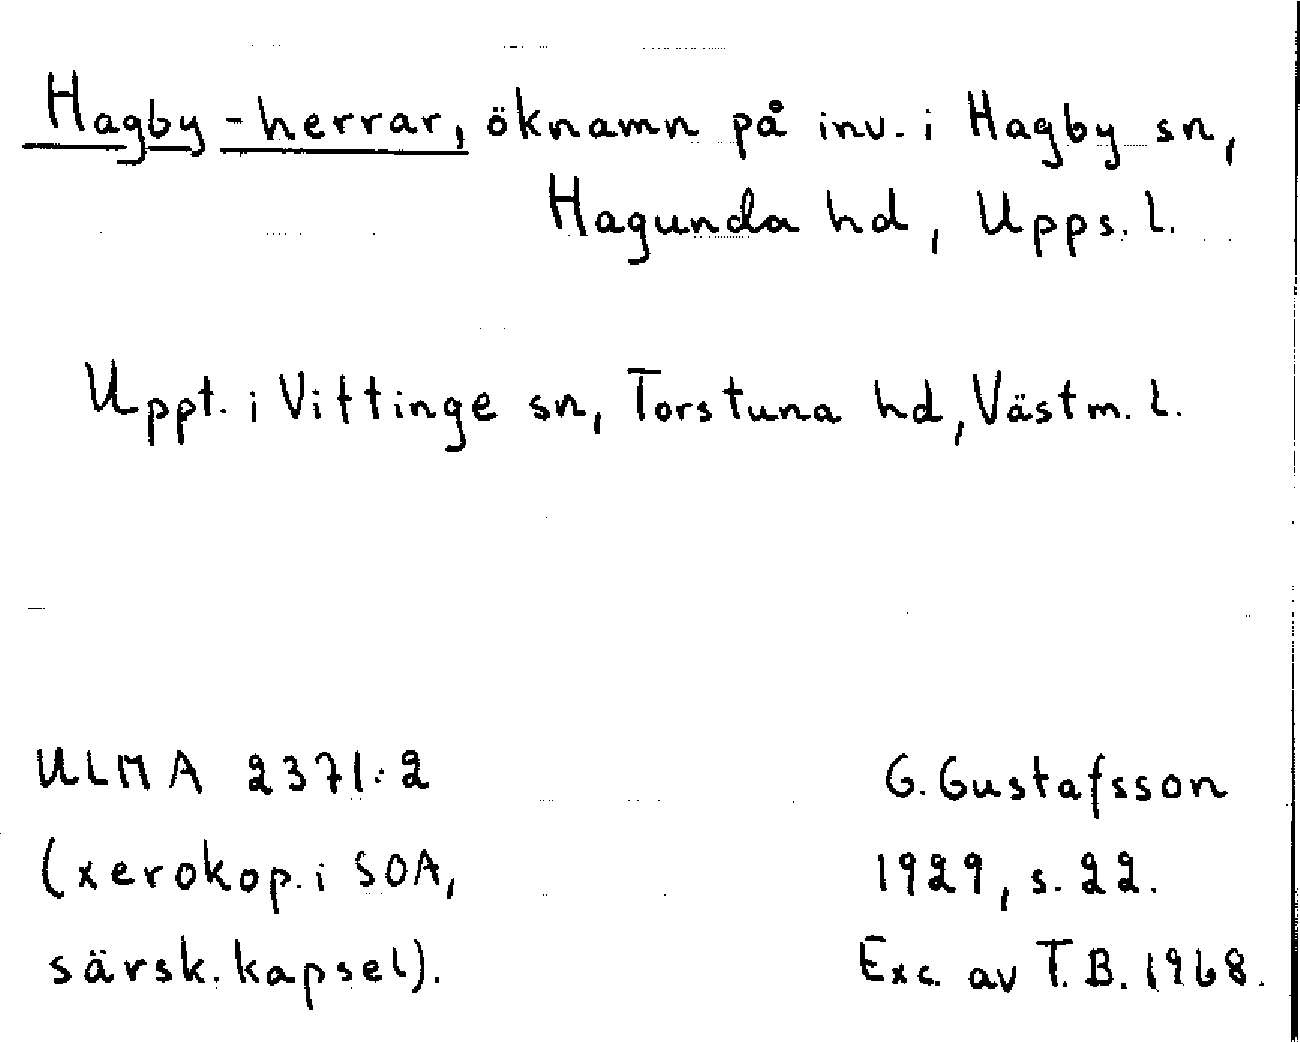 Hagby-herrar, öknamn på inv. i Hagby sn,
Hagunda hd, Upps. l.
Uppt. i Vittinge sn, Torstuna hd, Västm. l.
ULMA 2371:2
(xerokop. i SOA,
särsk. kapsel).
G. Gustafsson
1929, s. 22.
Exc. av T.B. 1968.